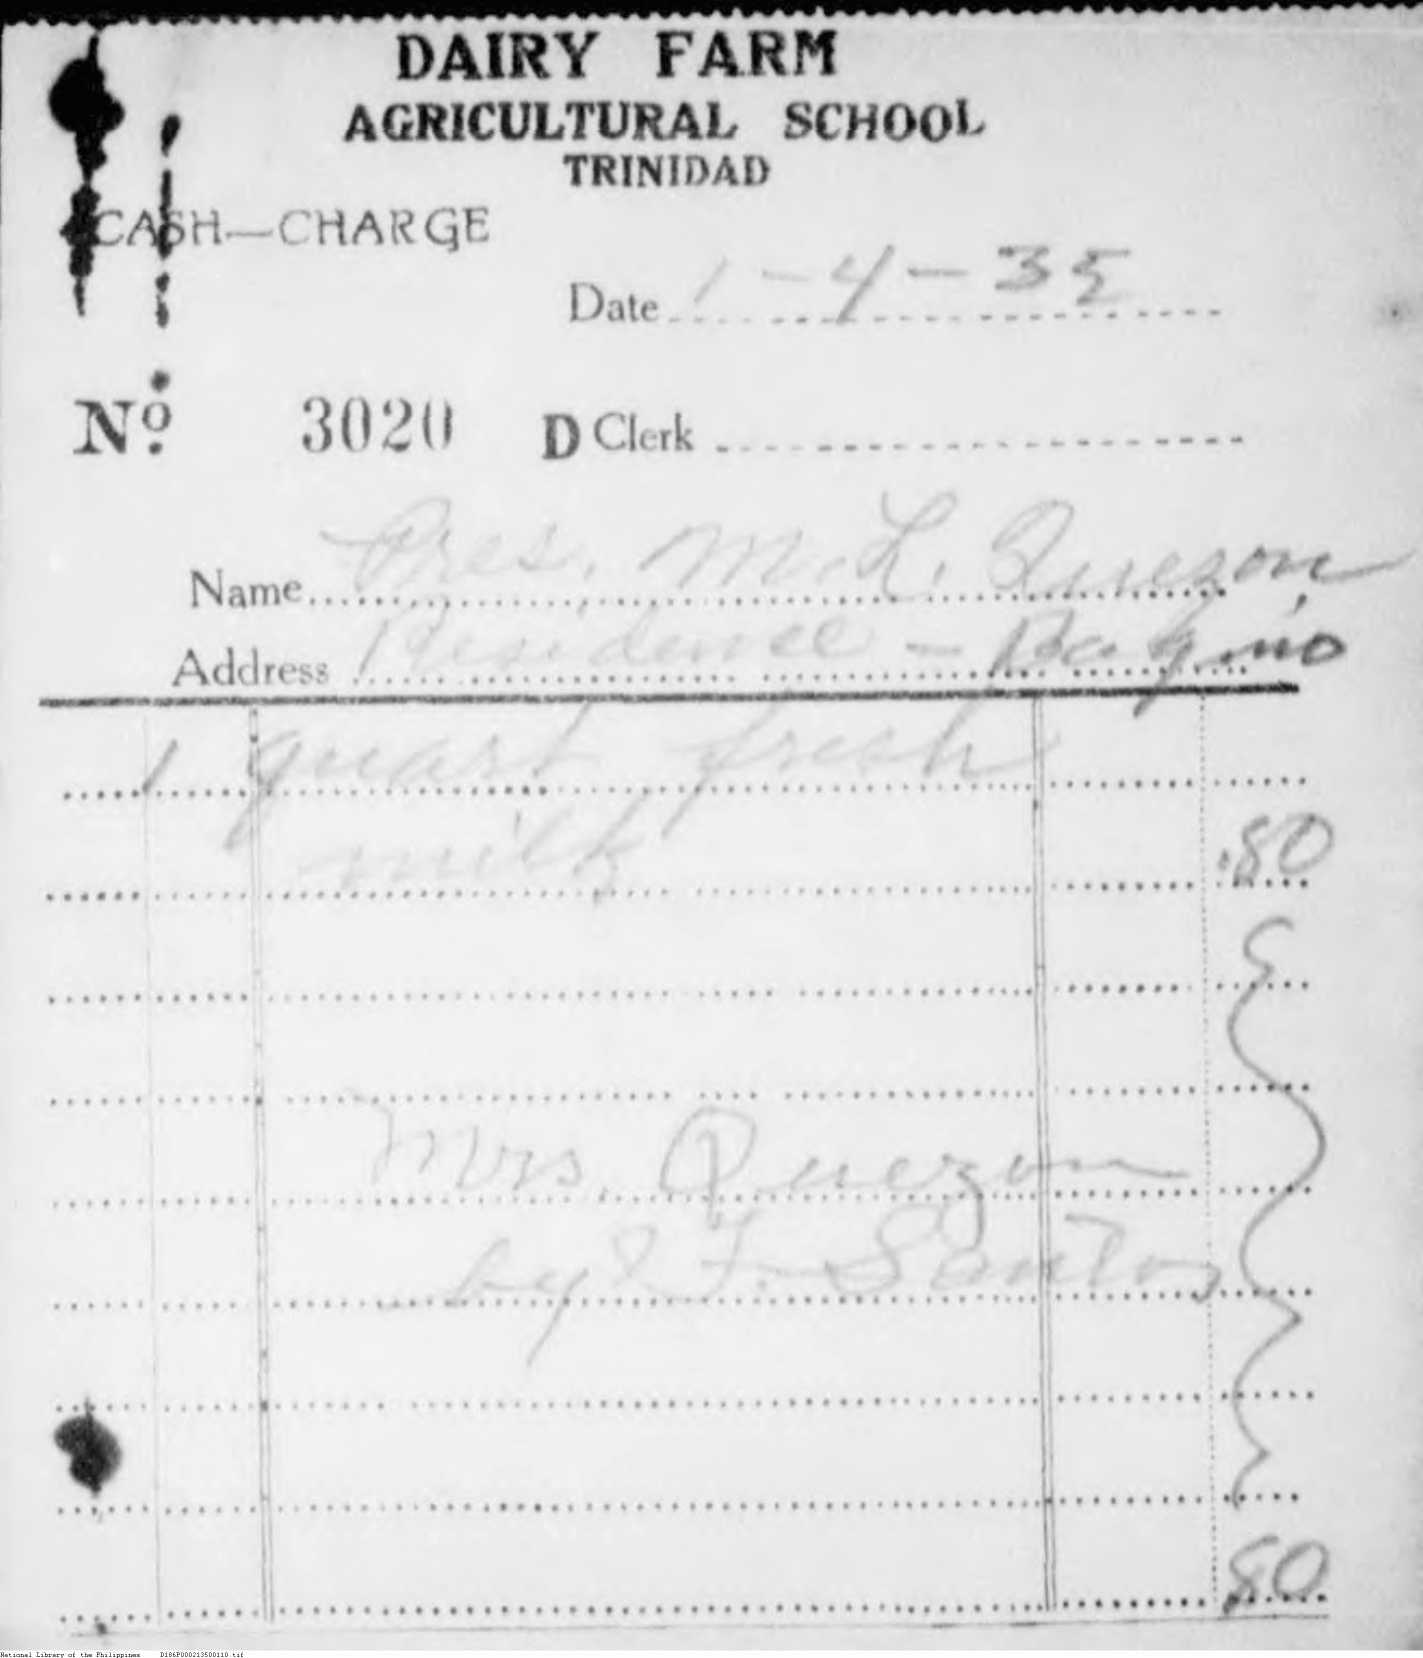 DAIRY FARM
AGRICULTURAL SCHOOL
TRINIDAD
CASH—CHARGE
Date 1-4-35
No. 3020 D Clerk
Name Pres. M. L. Quezon
Address Residence - Baguio
1 quart fresh
milk .80
Mrs. Quezon
by F. Santos
.80
National Library of the Philippines D186P000213500110.tif